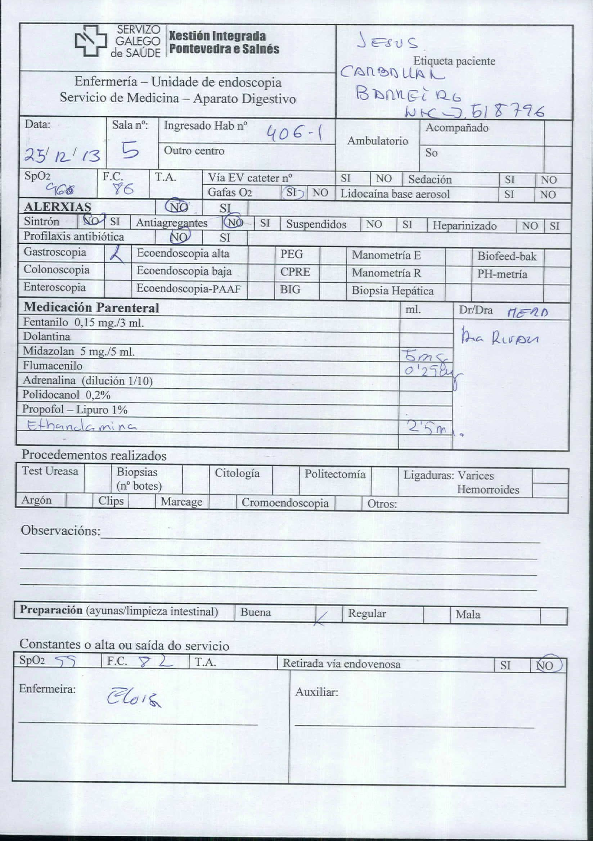 SERVIZO
GALEGO
de SAÚDE
Xestión Integrada
Pontevedra e Salnés
Enfermería – Unidade de endoscopia
Servicio de Medicina – Aparato Digestivo
JESUS
Etiqueta paciente
CARBALLAL
BARREIRO
518796
Data: 25/12/13
Sala nº: 5
Ingresado Hab nº 406-1
Outro centro
Ambulatorio
Acompañado
So
SpO2
F.C. 86
T.A.
Vía EV cateter nº SI NO Sedación SI NO
Gafas O2 SI NO Lidocaína base aerosol SI NO
ALERXIAS NO SI
Sintrón NO SI Antiagregantes NO SI Suspendidos NO SI Heparinizado NO SI
Profilaxis antibiótica NO SI
Gastroscopia Ecoendoscopia alta PEG Manometría E Biofeed-bak
Colonoscopia Ecoendoscopia baja CPRE Manometría R PH-metría
Enteroscopia Ecoendoscopia-PAAF BIG Biopsia Hepática
Medicación Parenteral ml. Dr/Dra
Fentanilo 0,15 mg./3 ml.
Dolantina
Midazolan 5 mg./5 ml. 5mg
Flumacenilo
Adrenalina (dilución 1/10)
Polidocanol 0,2%
Propofol – Lipuro 1%
Ethanolamina 2'5ml.
Procedementos realizados
Test Ureasa Biopsias Citología Politectomía Ligaduras: Varices
(nº botes) Hemorroides
Argón Clips Marcage Cromoendoscopia Otros:
Observacións:
Preparación (ayunas/limpieza intestinal) Buena Regular Mala
Constantes o alta ou saída do servicio
SpO2 99 F.C. 82 T.A. Retirada vía endovenosa SI NO
Enfermeira: Eloisa
Auxiliar: